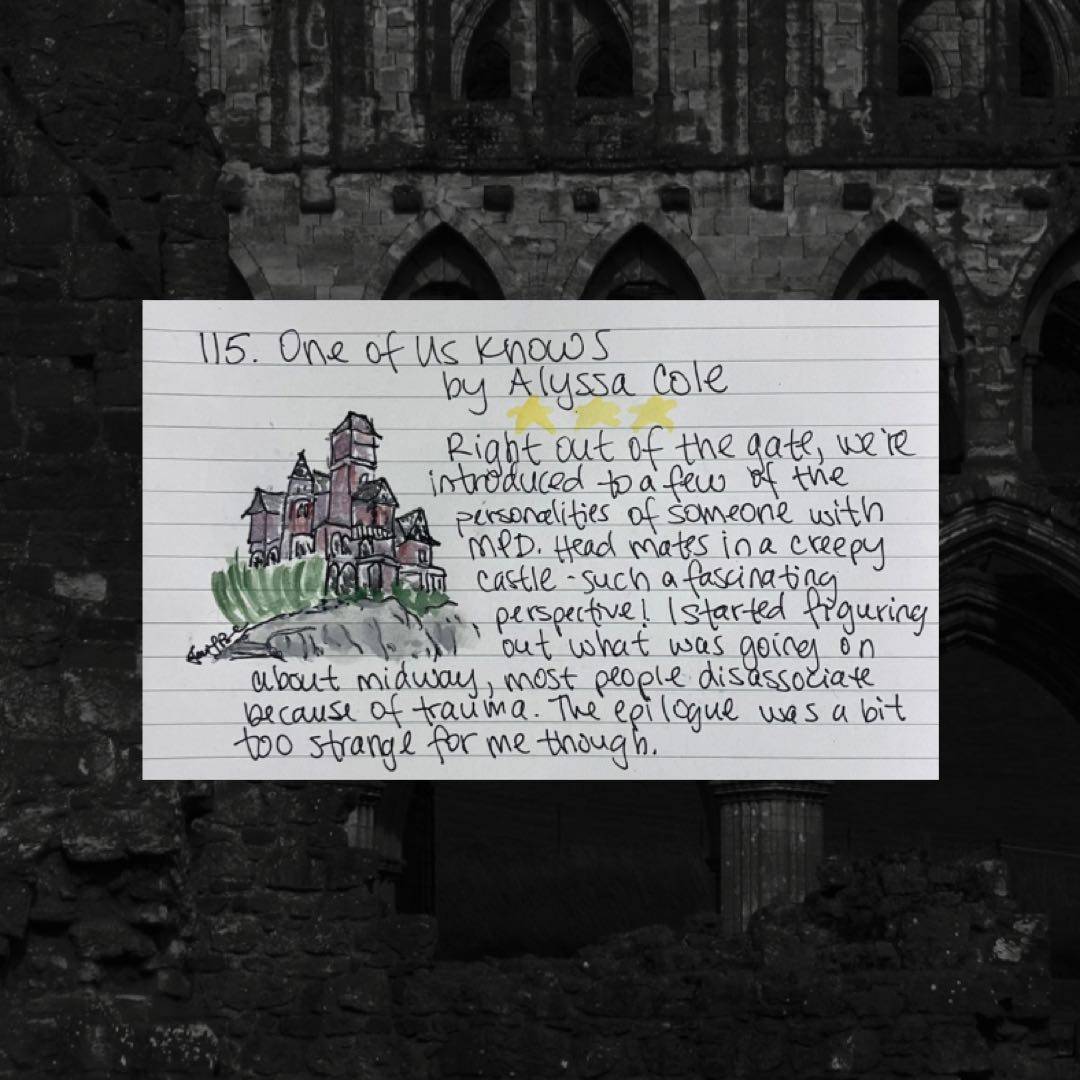 115. One of Us Knows
by Alyssa Cole
Right out of the gate, we're
introduced to a few of the
personalities of someone with
MPD. Head mates in a creepy
castle - such a fascinating
perspective! I started figuring
out what was going on
about midway, most people disassociate
because of trauma. The epilogue was a bit
too strange for me though.